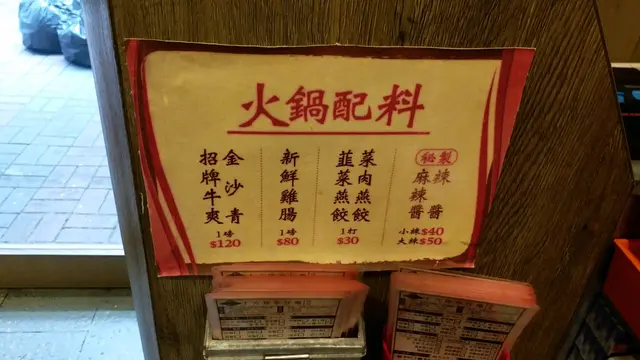 火鍋配料
招牌牛爽
金沙青
1磅
$120
新鮮雞腸
1磅
$80
韮菜燕餃
菜肉燕餃
1打
$30
秘製
麻辣醬
辣醬
小辣$40
大辣$50